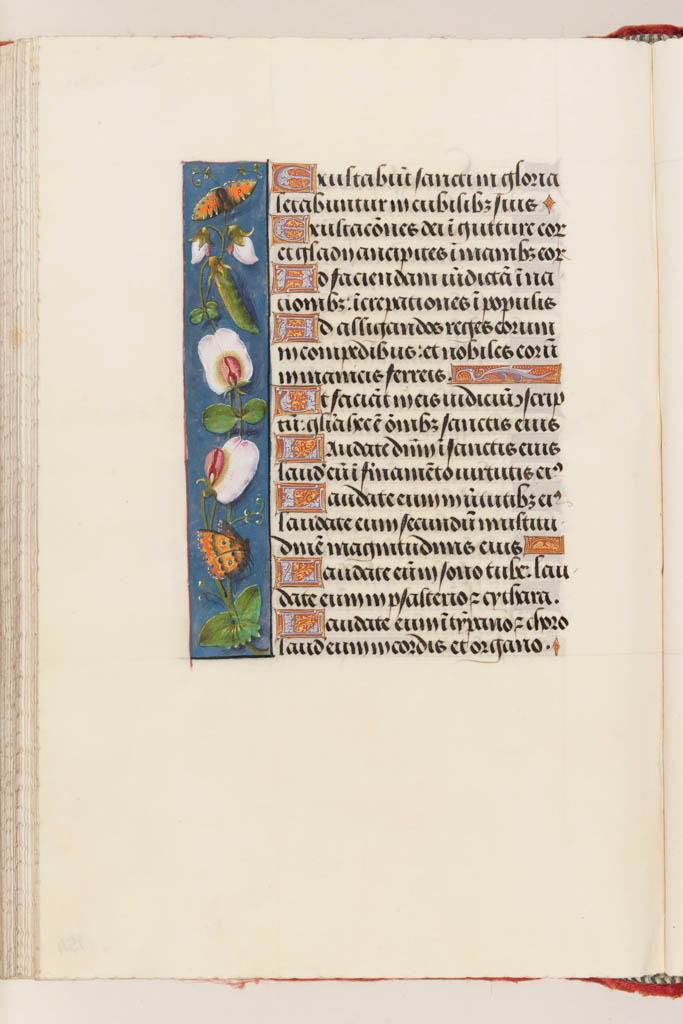 Exultabūt sancti in gloria
letabuntur in cubilibꝫ suis
Exultacōnes dei ī gutture eor
et gladij ancipites ī manibꝫ eor
Ad faciendam vīdictā ī na
cionibꝫ: īcrepationes ī populis
Ad alligandos reges eorum
in compedibus: et nobiles eorū
in manicis ferreis.
Ut faciāt in eis iudiciū ɔscrip
tū: gl̄ia hec ē ōnibꝫ sanctis eius
Laudate dn̄m ī sanctis eius
laud' eū ī firmamēto virtutis eiꝰ
Laudate eum in v̄tutibꝫ eiꝰ
laudate eum secundū multitu
dinē magnitudinis eius
Laudate eū in sono tube: lau
date eum in psalterio ⁊ cythara.
Laudate eum ī tȳpano ⁊ choro
laud' eum in cordis et organo.